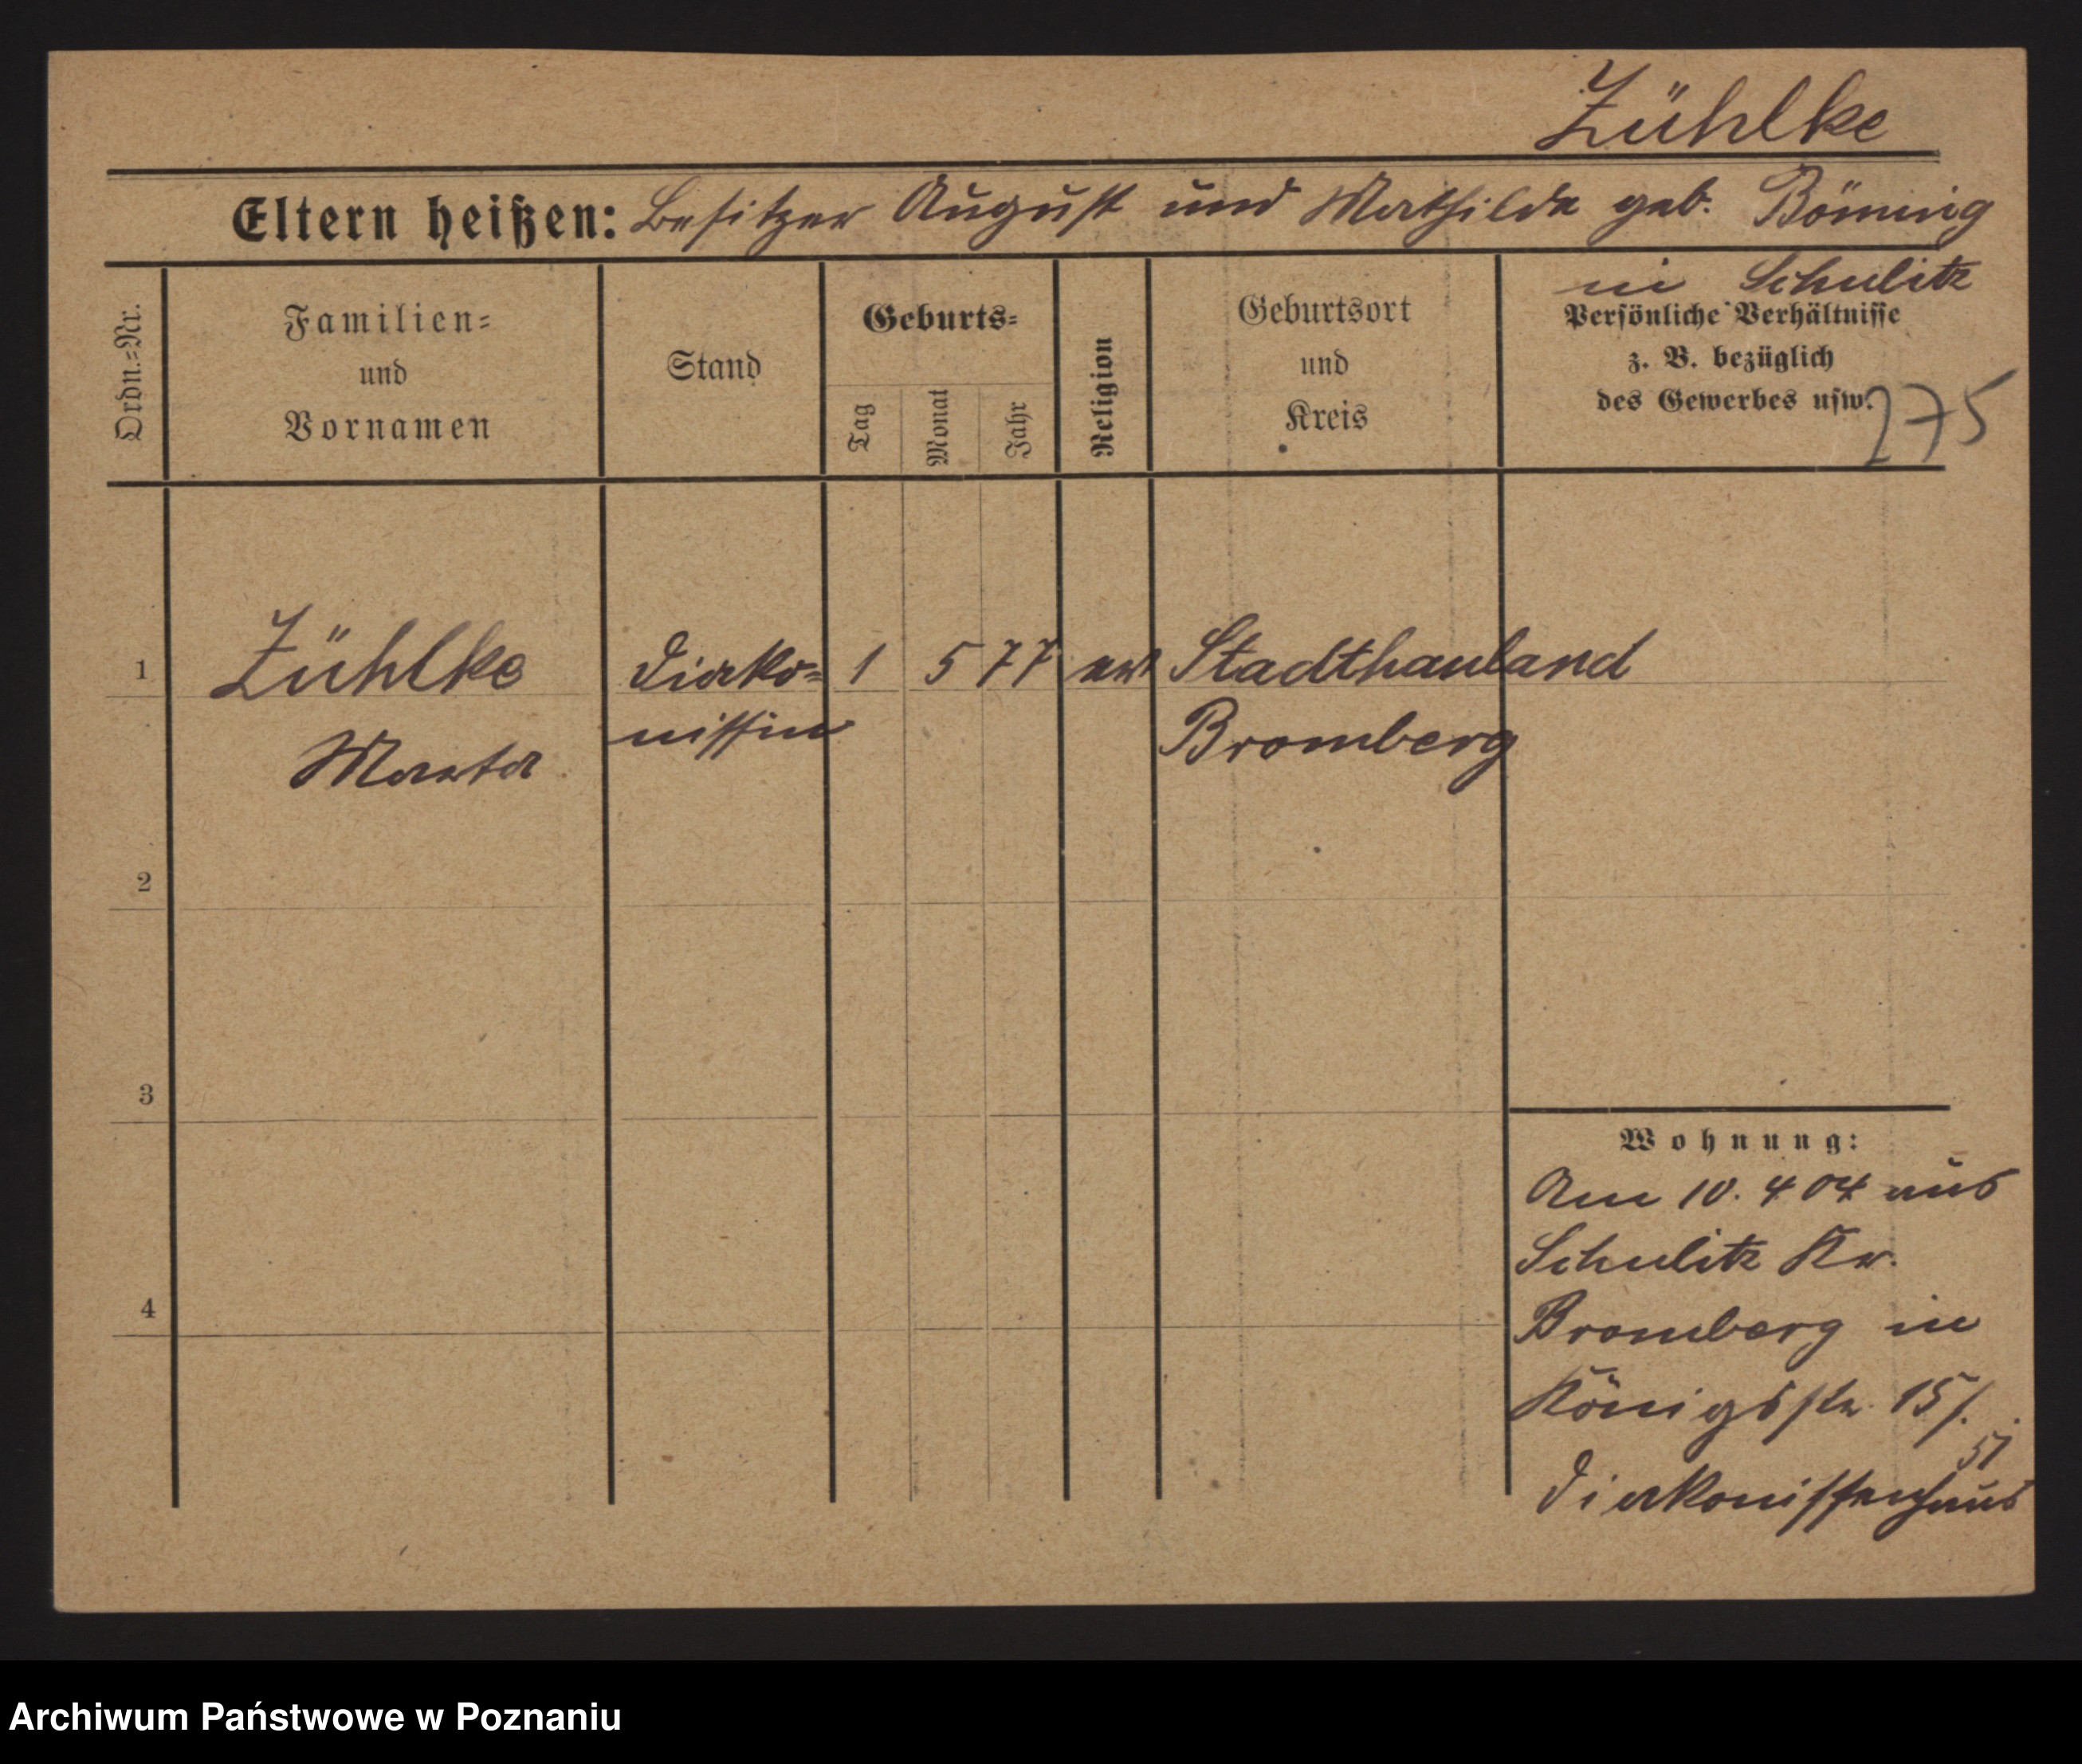 Zühlke
Eltern heißen: Besitzer August und Mathilde geb. Bönnig
in Schulitz
Ordn.=Nr.
Familien=
und
Vornamen
Stand
Geburts=
Tag
Monat
Jahr
Religion
Geburtsort
und
Kreis
Persönliche Verhältnisse
z. B. bezüglich
des Gewerbes usw.
275
1 Zühlke Diako= 1 5 77 ev Stadthauland
Martha nissin Bromberg
2
3
4
Wohnung:
Am 10. 4 04 aus
Schulitz Kr.
Bromberg in
Königsstr. 15/.
Diakonissenhaus
Archiwum Państwowe w Poznaniu